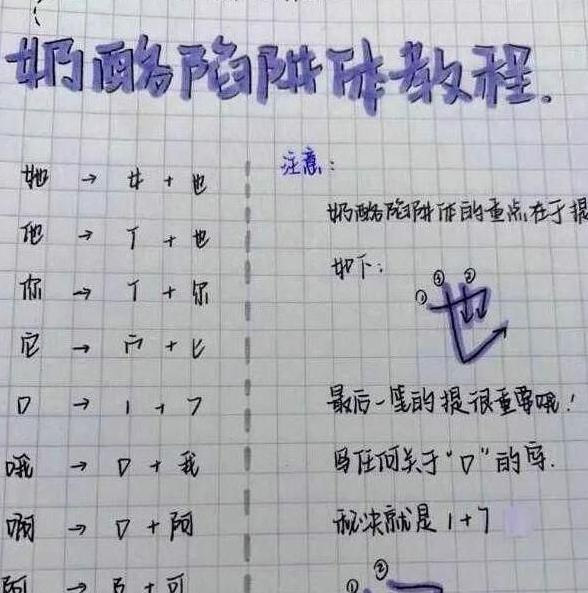 奶酪陷阱体教程.
她 → 女 + 也
他 → 亻 + 也
你 → 亻 + 尔
它 → 宀 + 匕
口 → 1 + 7
哦 → 口 + 我
啊 → 口 + 阿
阿 → 阝 + 可
注意:
奶酪陷阱体的重点在于提
如下:
① ③ ②
也
最后一笔的提很重要哦!
写任何关于"口"的字.
秘诀就是 1 + 7
① ②